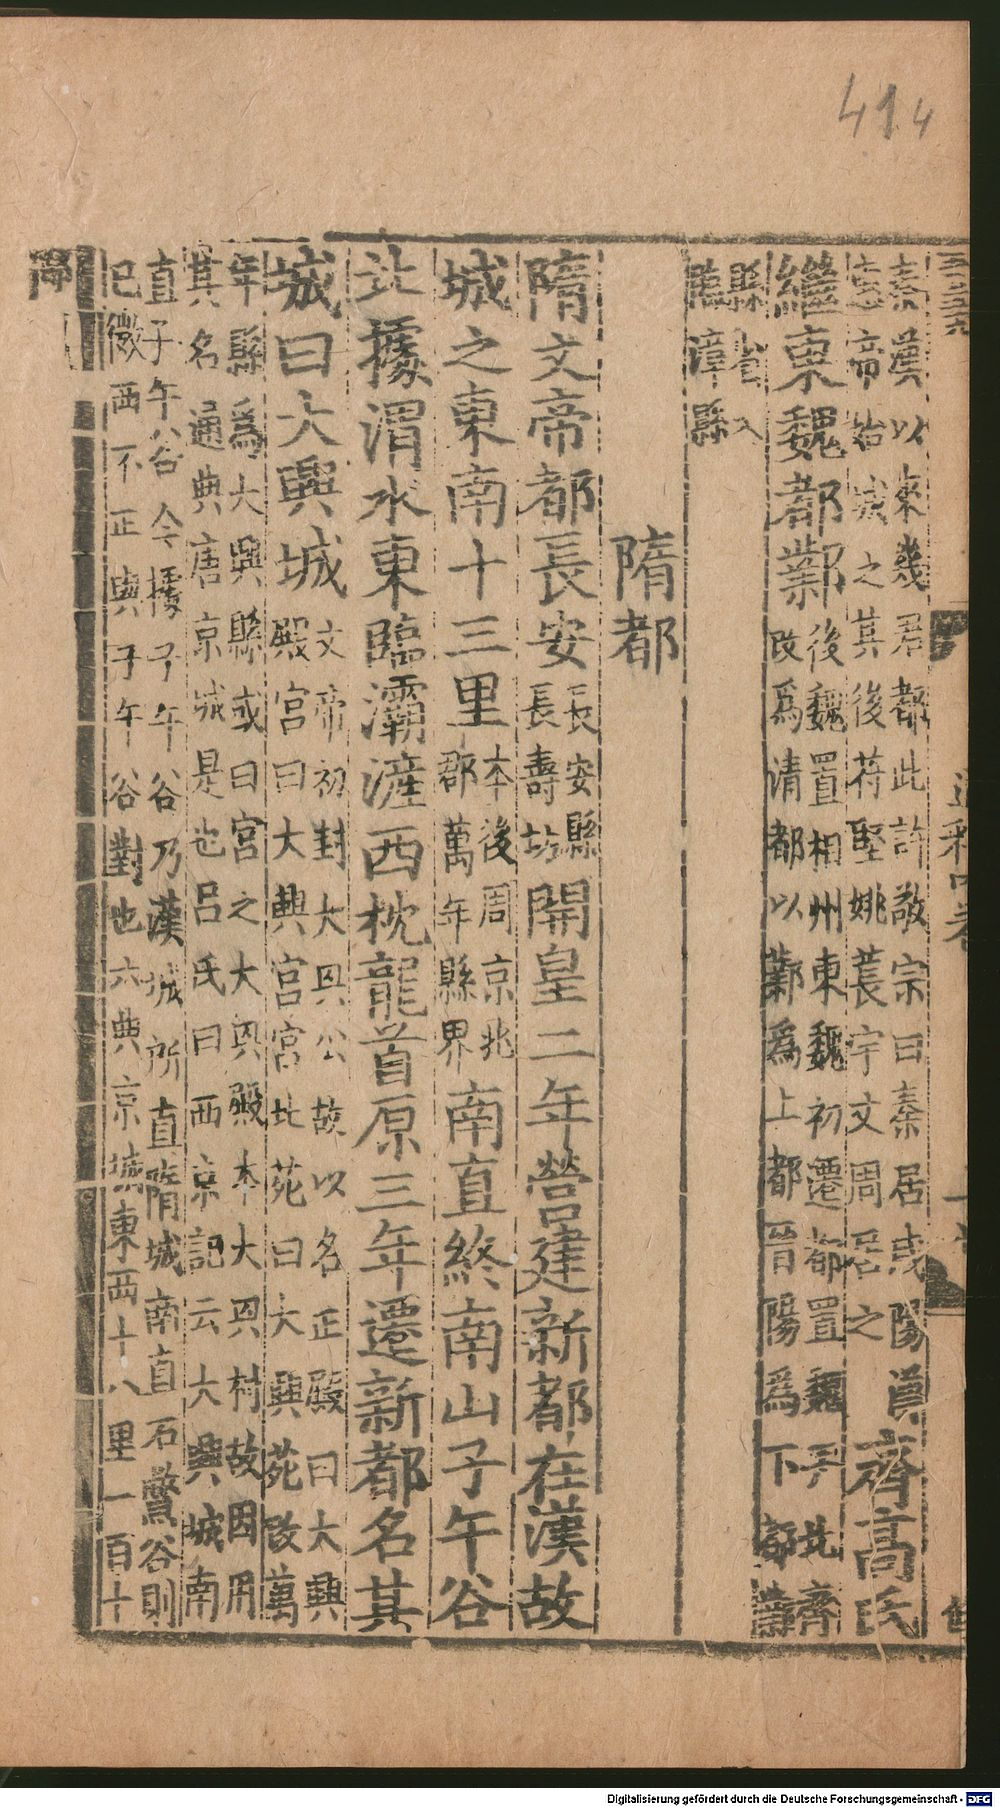 414
秦漢以來幾君都此許敬宗曰秦居咸陽
惠帝始城之其後苻堅姚萇宇文周居之
齊高氏
繼東魏都鄴
後魏置相州東魏初遷都置魏尹北齊
改爲清都以鄴爲上都晉陽爲下都
縣省入
漳縣
隋都
隋文帝都長安
長安縣
長壽坊
開皇二年營建新都在漢故
城之東南十三里
本後周京兆
郡萬年縣界
南直終南山子午谷
北據渭水東臨灞滻西枕龍首原三年遷新都名其
城曰大興城
文帝初封大興公故以名正殿曰大興
殿宮曰大興宮宮北苑曰大興苑改萬
年縣爲大興縣或曰宮之大興殿本大興村故因用
其名通典唐京城是也呂氏曰西京記云大興城南
直子午谷今據子午谷乃漢城所直隋城南直石鱉谷則
已微西不正與子午谷對也六典京城東西十八里一百十
Digitalisierung gefördert durch die Deutsche Forschungsgemeinschaft - DFG